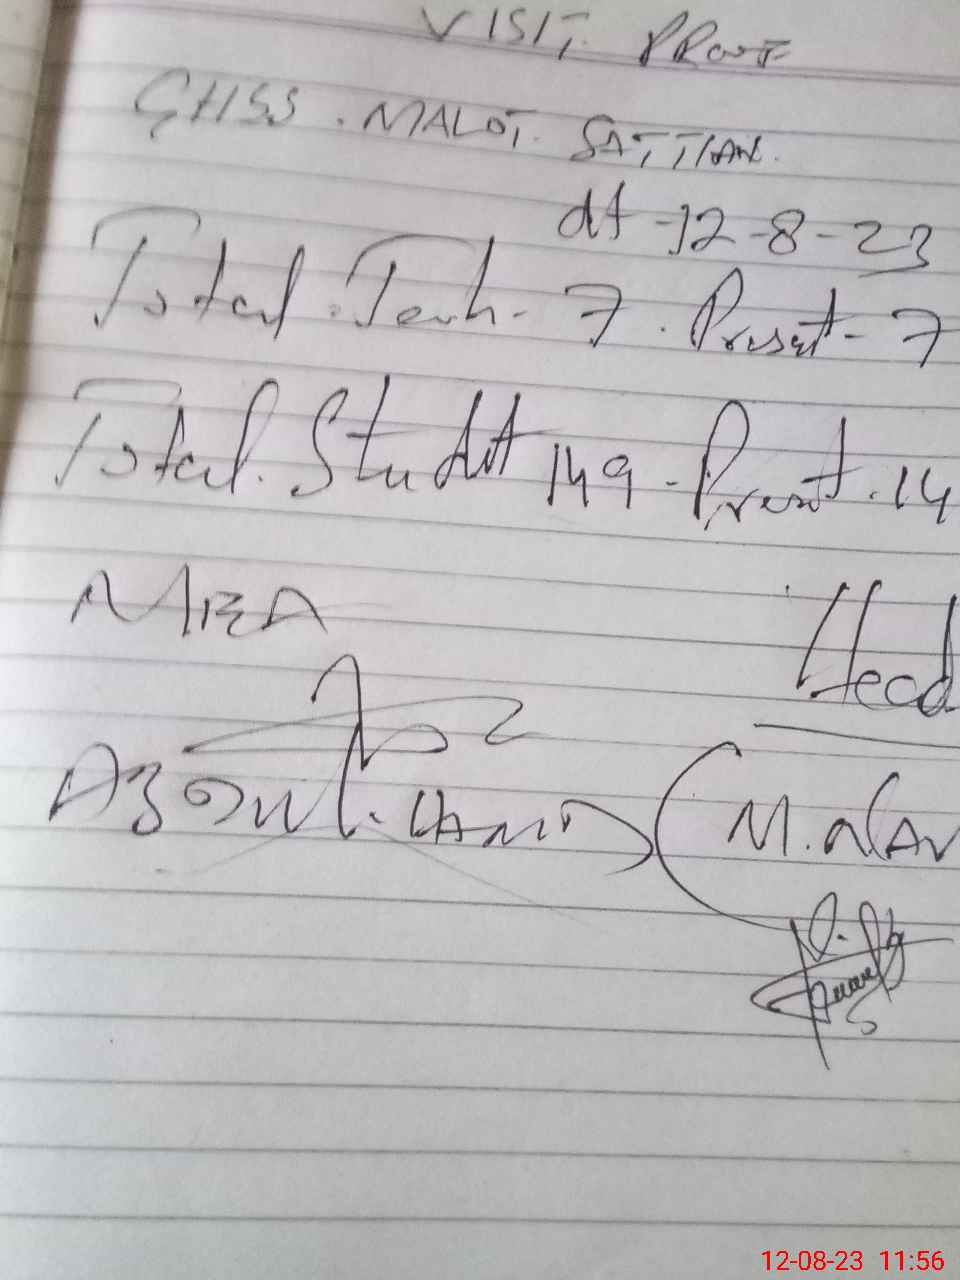 VISIT PROOF
GHSS. MALOT. SATTIAN.
dt-12-8-23
Total. Teach- 7. Present- 7
Total. Studt 149 - Present. 14
MEA
Head
Abdul. HAMID (M.
12-08-23 11:56